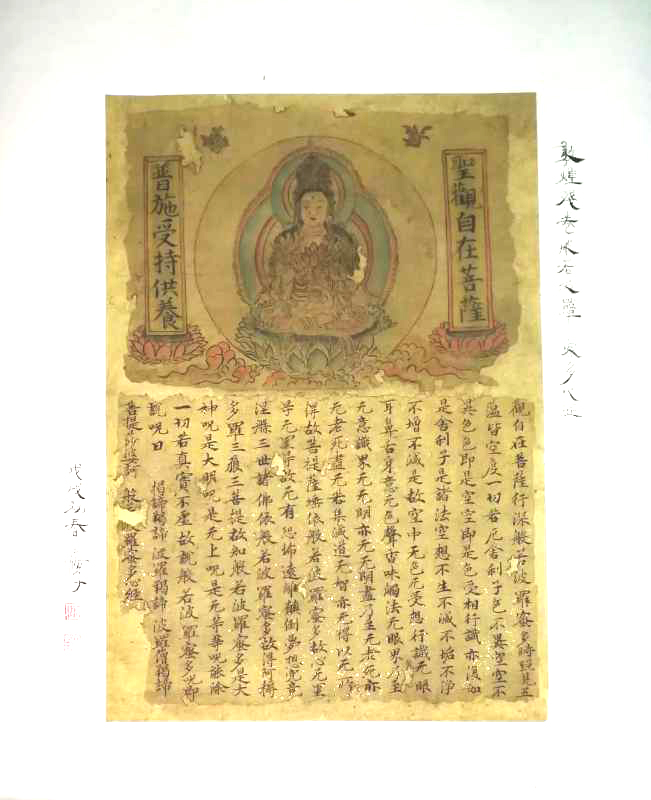 敦煌殘卷
聖觀自在菩薩
普施受持供養
觀自在菩薩行深般若波羅蜜多時照見五
蘊皆空度一切苦厄舍利子色不異空空不
異色色即是空空即是色受相行識亦復如
是舍利子是諸法空想不生不滅不垢不淨
不增不減是故空中无色无受想行識无眼
耳鼻舌身意无色聲香味觸法无眼界乃至
无意識界无无明亦无无明盡乃至无老死亦
无老死盡无苦集滅道无智亦无得以无所
得故菩提薩埵依般若波羅蜜多故心无罣
㝵无罣㝵故无有恐怖遠離顛倒夢想究竟
涅槃三世諸佛依般若波羅蜜多故得阿耨
多羅三藐三菩提故知般若波羅蜜多是大
神呪是大明呪是无上呪是无等等呪能除
一切苦真實不虛故說般若波羅蜜多呪即
說呪曰 揭諦揭諦 波羅揭諦 波羅僧揭諦
菩提莎婆訶 般若波羅蜜多心經
戊戌初春